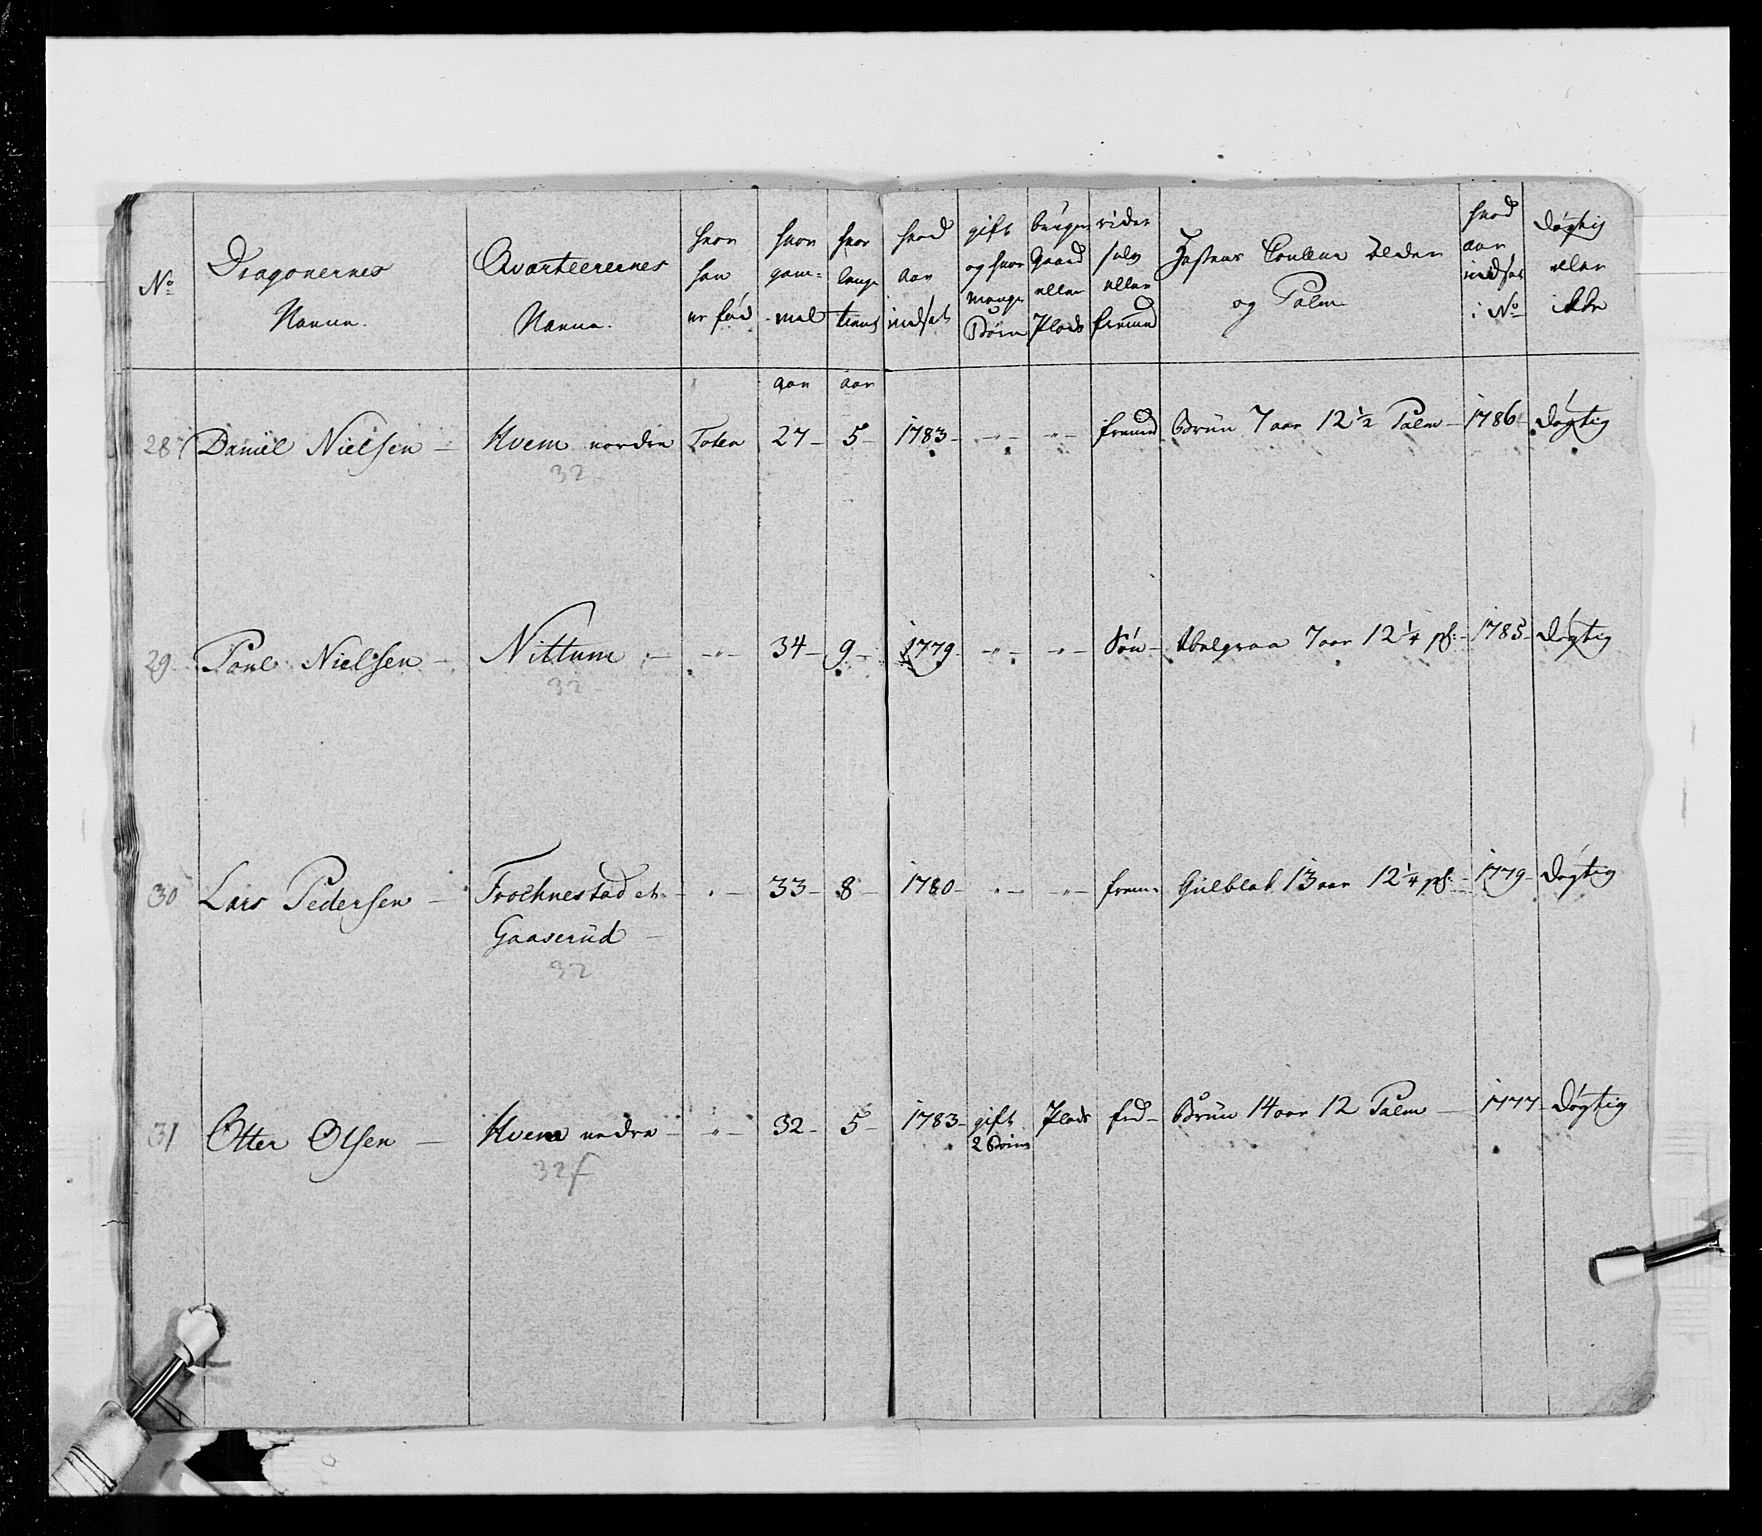 No | Dragonernes Navne. | Qvarteerernes Navne. | hvor han er fød | hvor gam- mel | hvor lenge tient | hvad aar indsat | gift og hvor mange Børn | bruger Gaard eller Plads | rider selv eller fremed | Hæstens Couleur Alder og Palm | hvad aar indsat i No | Døgtig eller ikke
aar | aar
28 | Daniel Nielsen – | Kvem nordre | Toten | 27 – | 5 – | 1783 – | – " – | – " – | fremed | Brün 7 aar 12 1/2 Palm – | 1786 | Døgtig
32
29 | Poul Nielsen – | Nittum – | – " – | 34 – | 9 – | 1779 – | – " – | – " – | Søn – | Abelgraa 7 aar 12 1/4 pl: – | 1785 – | Døgtig
32
30 | Lars Pedersen – | Frochnestad et | – " – | 33 – | 8 – | 1780 – | – " – | – " – | frem: | Gulblak 13 aar 12 1/4 pl: – | 1779 – | Døgtig
Gaaserüd –
32
31 | Otter Olsen – | Kvem nedre – | – " – | 32 – | 5 – | 1783 – | gift | Plads | frd – | Brün 14 aar 12 Palm – | 1777 – | Døgtig
2 Börn
32 f